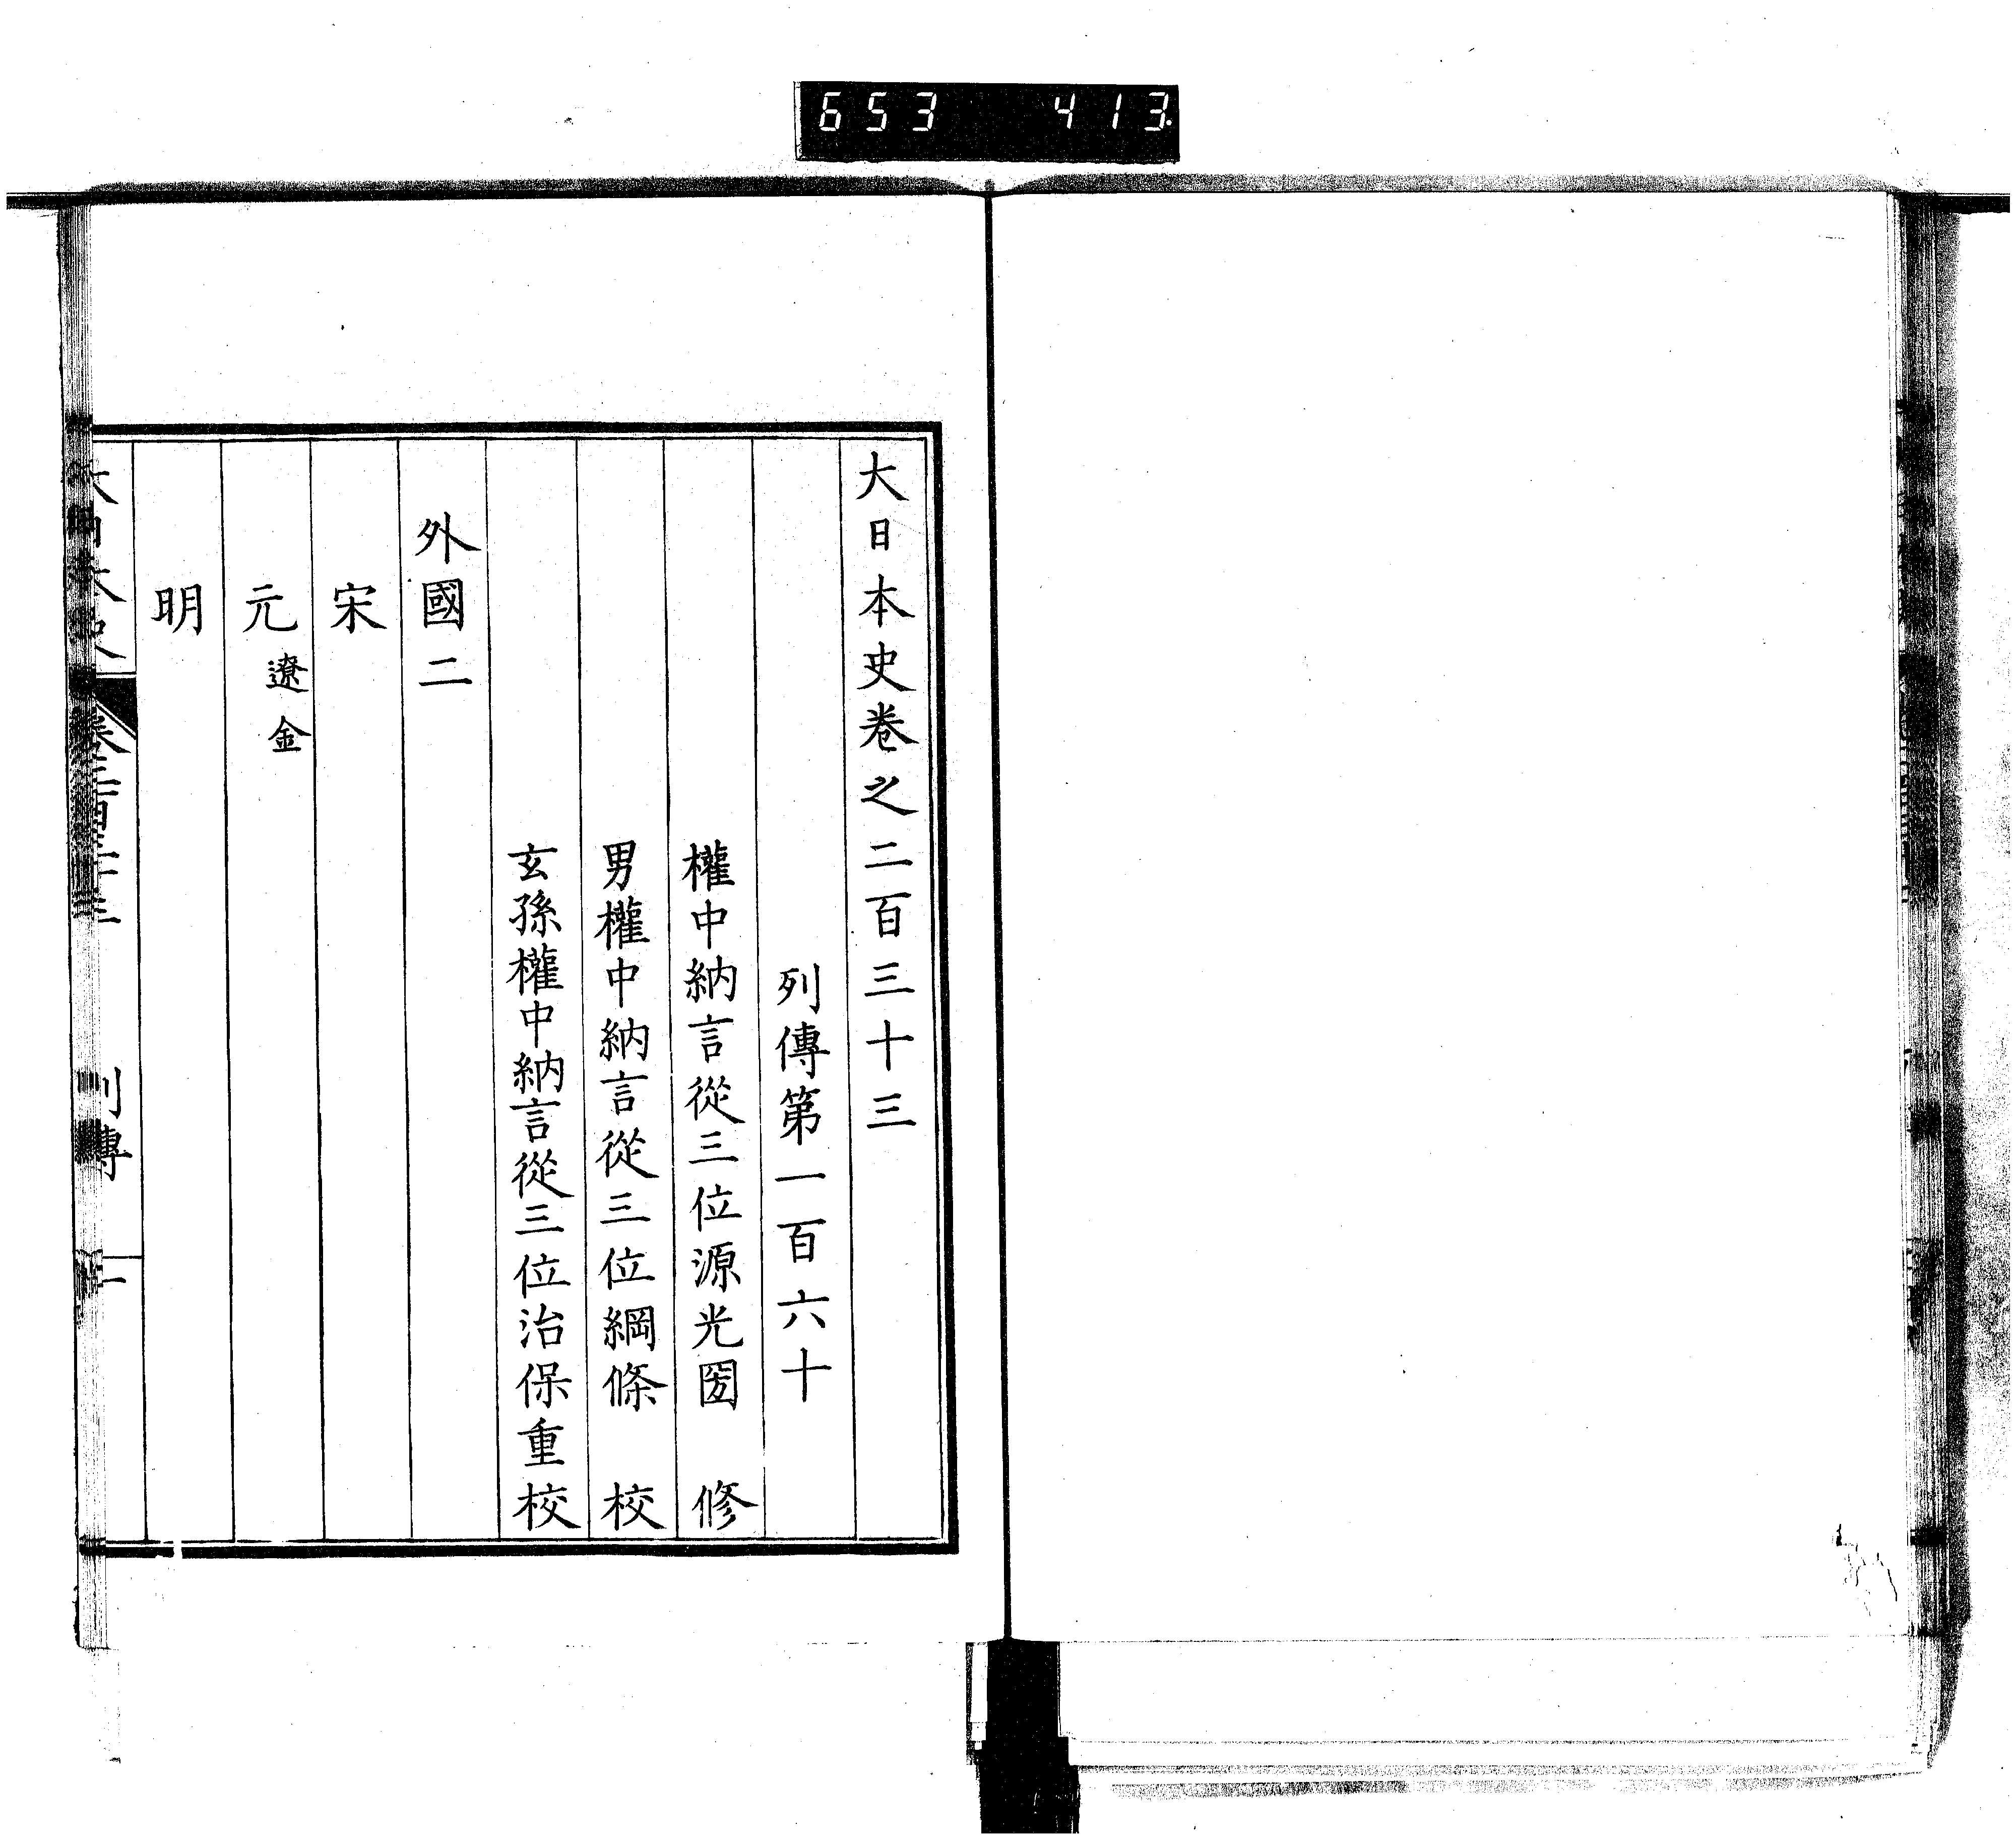 653 413
大日本史卷之二百三十三
列傳第一百六十
權中納言從三位源光圀 修
男權中納言從三位綱條 校
玄孫權中納言從三位治保重校
外國二
宋
元 遼金
明